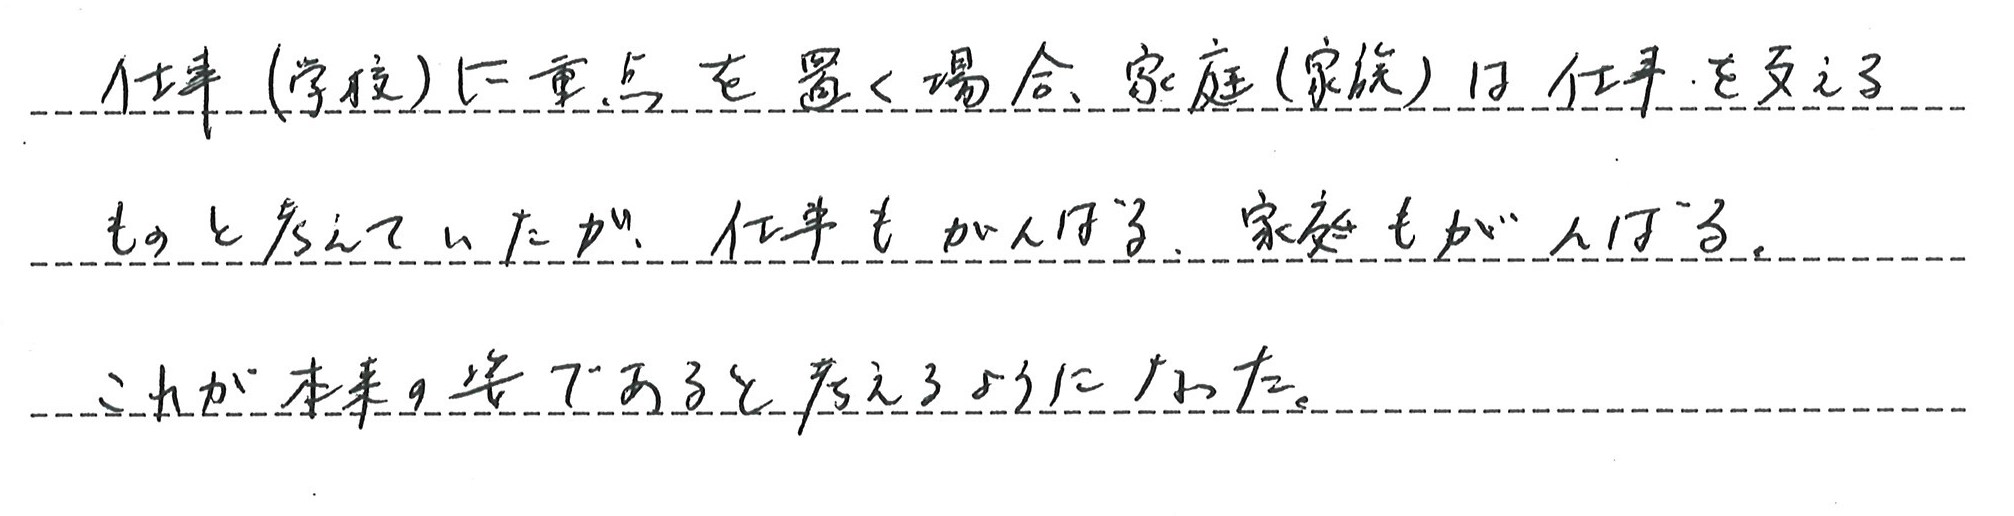 仕事(学校)に重点を置く場合、家庭(家族)は仕事を支える
ものと考えていたが、仕事もがんばる、家庭もがんばる。
これが本来の姿であると考えるようになった。